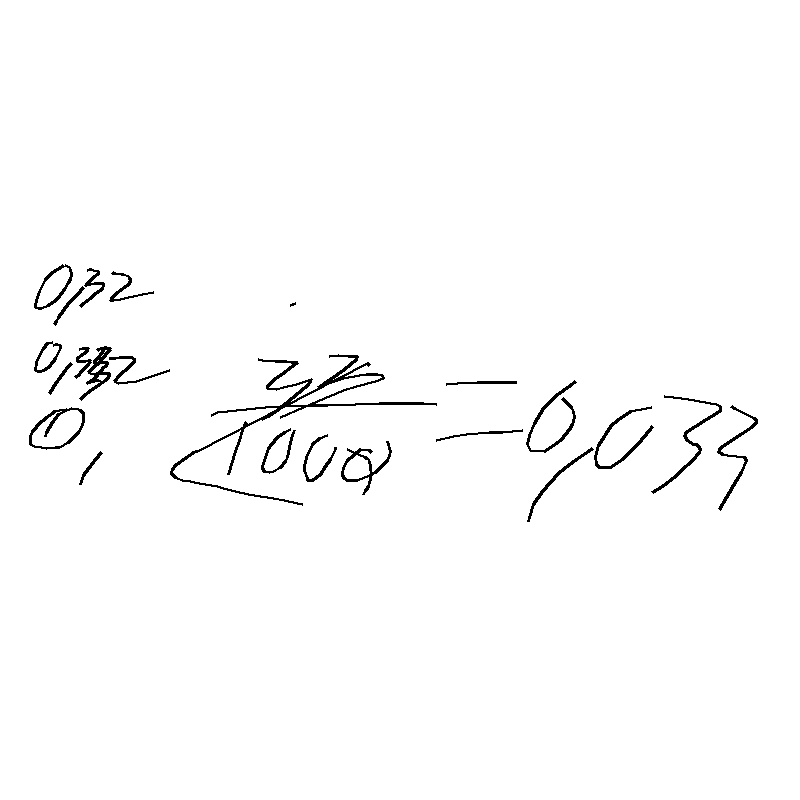 0,32
0,332
0,
33/1000 = 0,033